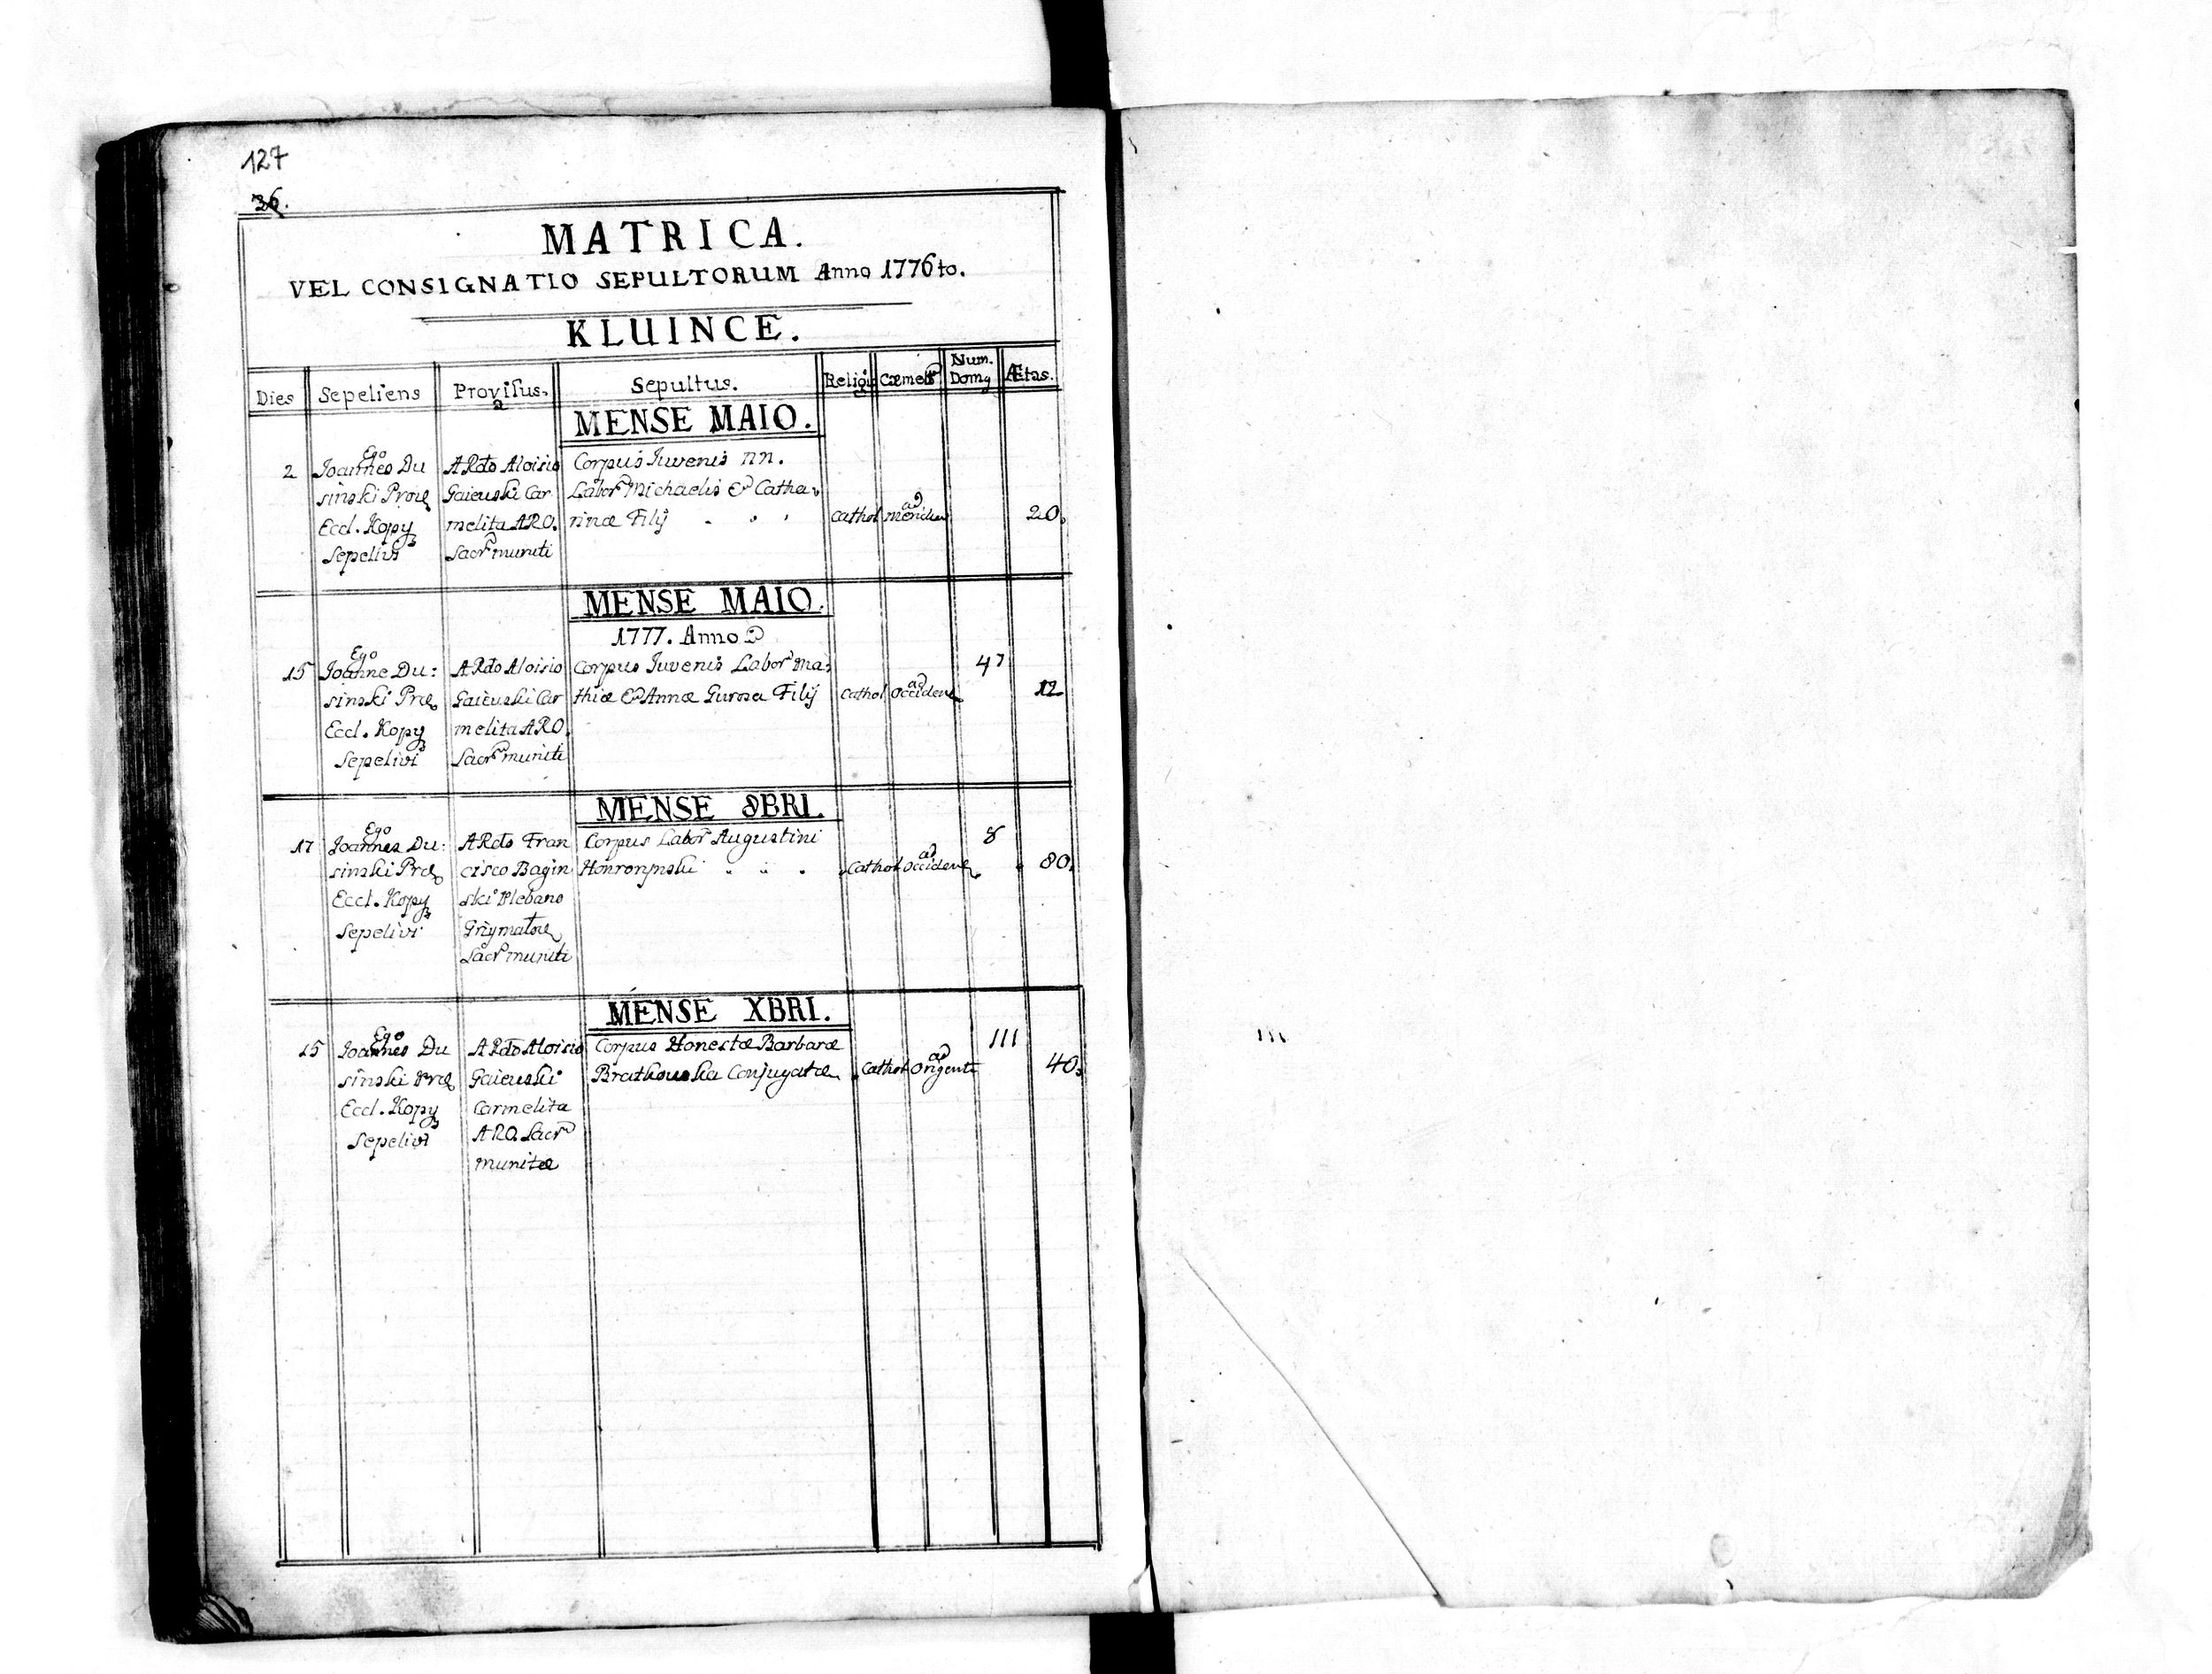 127
36.
MATRICA.
VEL CONSIGNATIO SEPULTORUM Anno 1776to.
KLUINCE.
Dies Sepeliens Provisus a Sepultus. Religio Cæmetr Num. Domg Ætas.
MENSE MAIO.
2
Ego
Joannes Du
sinski Præ
Eccl. Kopy
Sepelivi
ARdo Aloisio
Gaieuski Car
melita ARO.
Sacr muniti
Corpus Iuvenis nn.
Labor Michaelis & Catha
rinæ Filij
Cathol
ad
meridiem
20.
MENSE MAIO.
1777. Anno D
15
Ego
Joanne Du:
sinski Præ
Eccl. Kopy
Sepelivi
ARdo Aloisio
Gaieuski Car
melita ARO.
Sacr muniti
Corpus Iuvenis Labor Ma
thiæ & Annæ Gurosa Filij
Cathol
ad
Occidene
47
12
MENSE 8BRI.
17
Ego
Joannes Du:
sinski Præ
Eccl. Kopy
Sepelivi
ARdo Fran
cisco Bagin
ski Plebano
Sacr muniti
Corpus Labor Augustini
Cathol
ad
Occidene
8
80.
MENSE XBRI.
15
Ego
Joannes Du
sinski Præ
Eccl. Kopy
Sepelivi
ARdo Aloisio
Gaieuski
Carmelita
ARO. Sacr
munitæ
Corpus Honestæ Barbaræ
Bratkouska Conjugatæ
Cathol
ad
Origente
111
40.